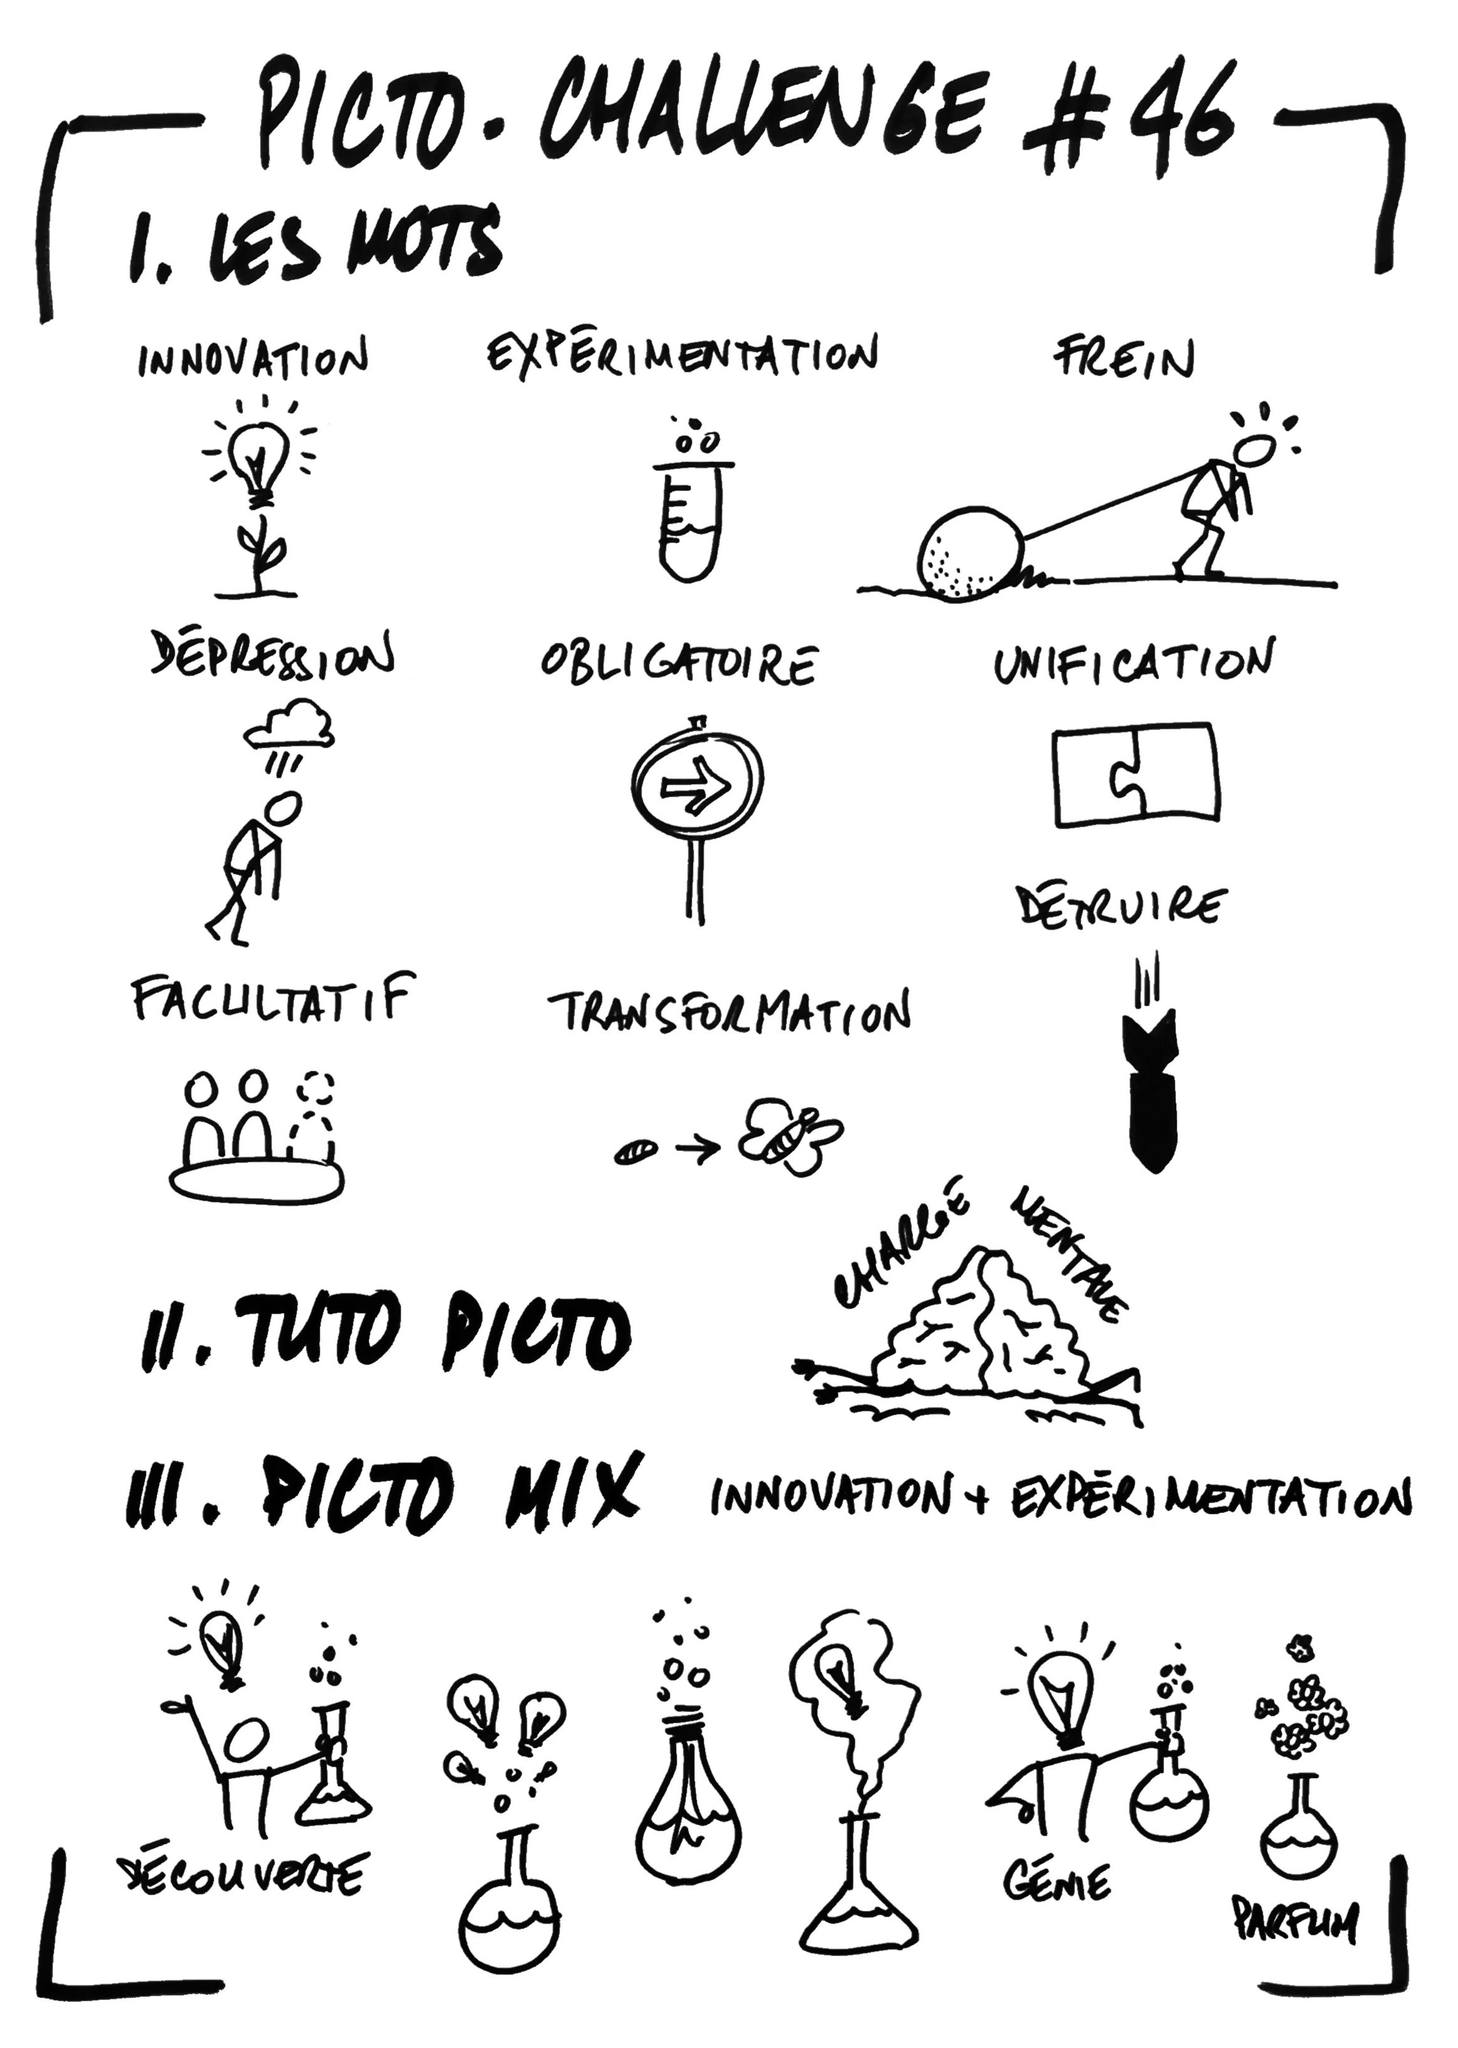 PICTO. CHALLENGE #46
I. LES MOTS
INNOVATION
EXPÉRIMENTATION
FREIN
DÉPRESSION
OBLIGATOIRE
UNIFICATION
DÉTRUIRE
FACULTATIF
TRANSFORMATION
CHARGE MENTALE
II. TUTO PICTO
III. PICTO MIX
INNOVATION + EXPÉRIMENTATION
DÉCOUVERTE
GÉNIE
PARFUM